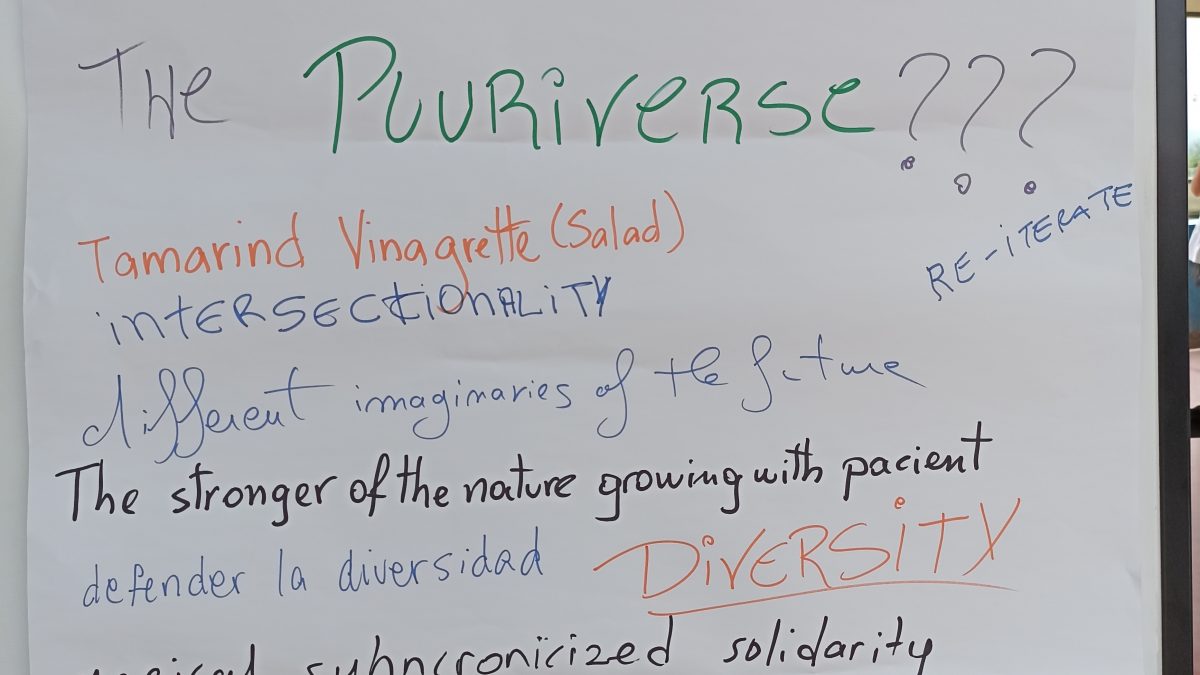 THE PLURIVERSE???
RE-ITERATE
Tamarind Vinagrette (Salad)
INTERSECTIONALITY
different imaginaries of the future
The stronger of the nature growing with pacient
defender la diversidad DIVERSITY
solidarity